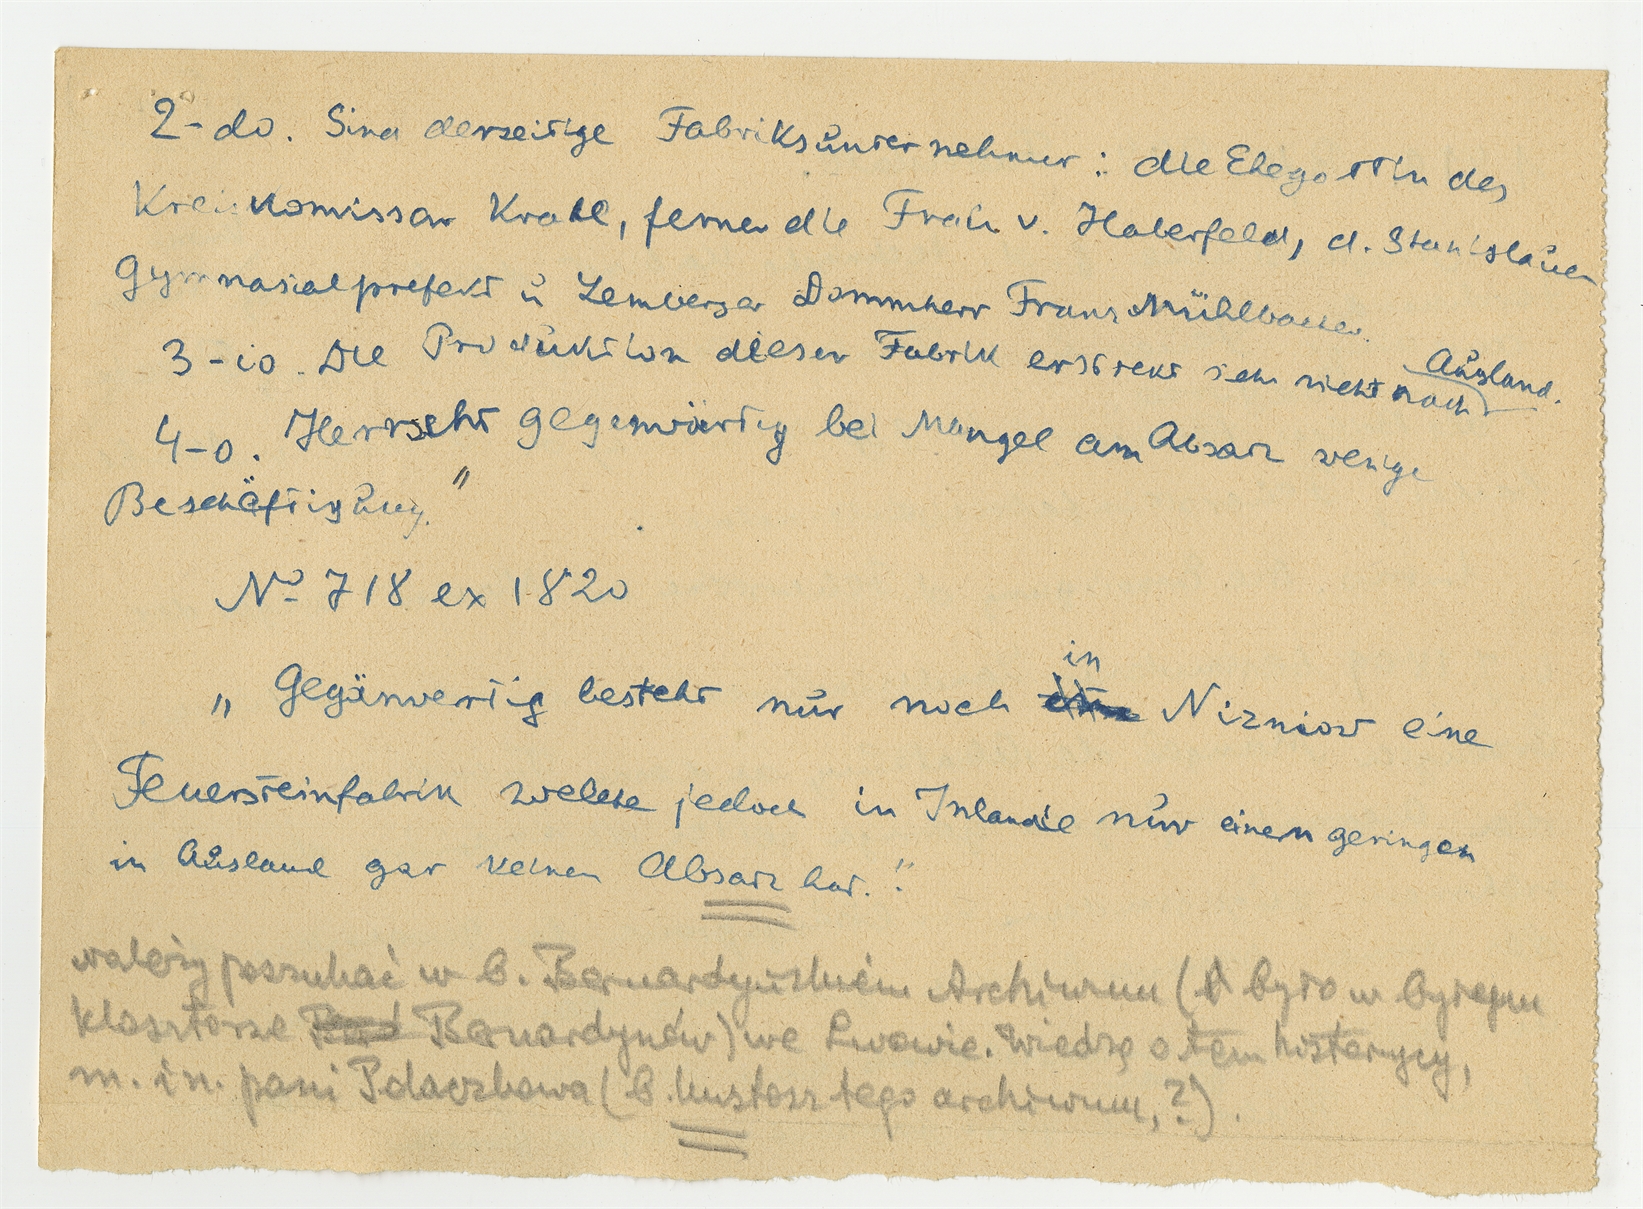 2-do. Sind derzeitige Fabriksünternehmer: die Ehegattin des
Kreiskomissar Krahl, ferner die Frau v. Haberfeld, d. Stanislauer
Gymnasialprefekt ü Lemberger Dommherr Franz Mühlbauer.
3-io. Die Prodüktion dieser Fabrik erstrekt sich nicht nach Ausland.
4-o. Herrscht gegenwärtig bei Mangel am Absatz wenige
Beschäftigüng."
No 718 ex 1820
„Gegänwertig besteht nür noch in Nizniow eine
Feuersteinfabrik welche jedoch in Inlande nür einen geringen
in Aüsland gar keinen Absatz hat."
należy poszukać w b. Bernardyńskiem Archiwum (było w byłym
klasztorze Bernardynów) we Lwowie. Wiedzą o tem historycy,
m. in. pani Polaczkowa (b. kustosz tego archiwum,?).